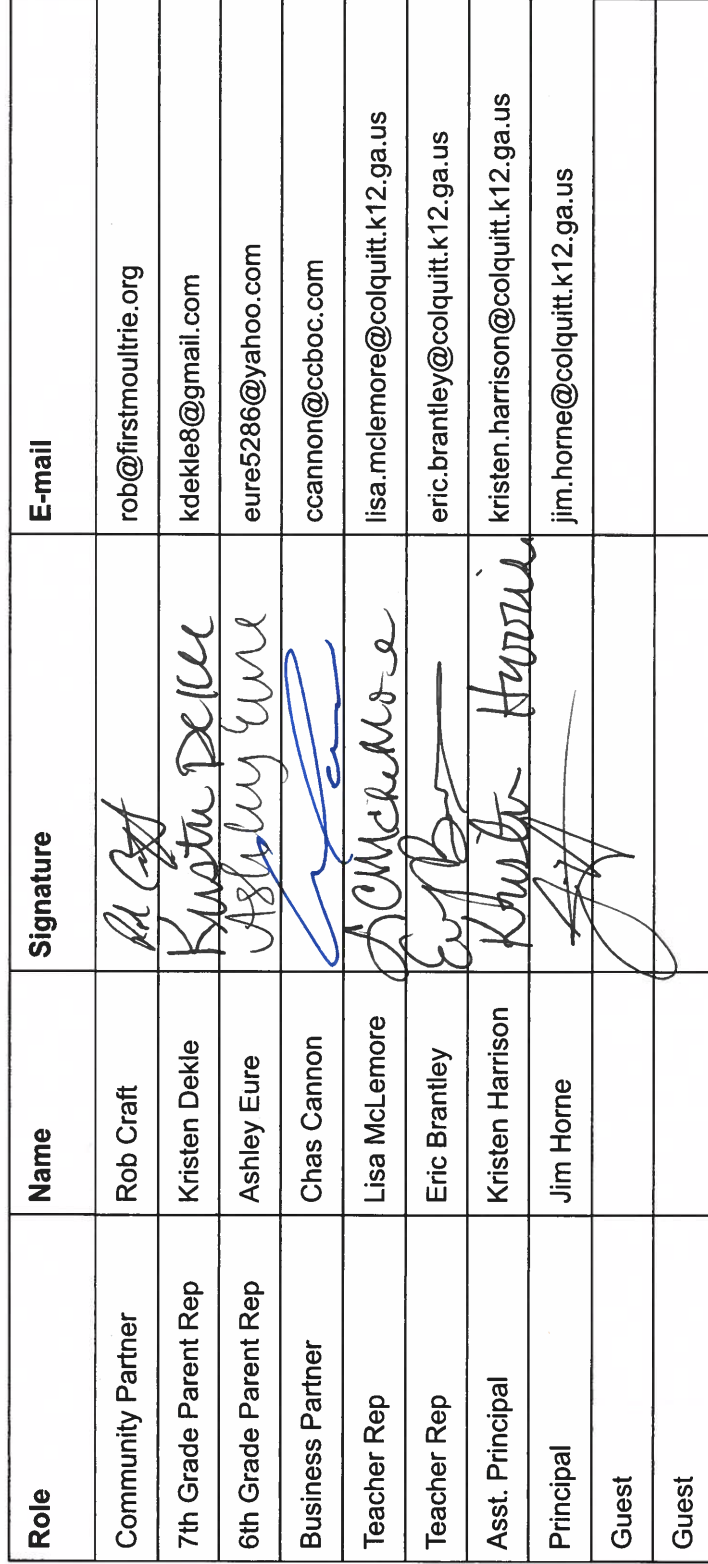 Role Name Signature E-mail
Community Partner Rob Craft Rob Craft rob@firstmoultrie.org
7th Grade Parent Rep Kristen Dekle Kristen Dekle kdekle8@gmail.com
6th Grade Parent Rep Ashley Eure Ashley Eure eure5286@yahoo.com
Business Partner Chas Cannon ccannon@ccboc.com
Teacher Rep Lisa McLemore McLeMore lisa.mclemore@colquitt.k12.ga.us
Teacher Rep Eric Brantley eric.brantley@colquitt.k12.ga.us
Asst. Principal Kristen Harrison Kristen Harrison kristen.harrison@colquitt.k12.ga.us
Principal Jim Horne jim.horne@colquitt.k12.ga.us
Guest
Guest